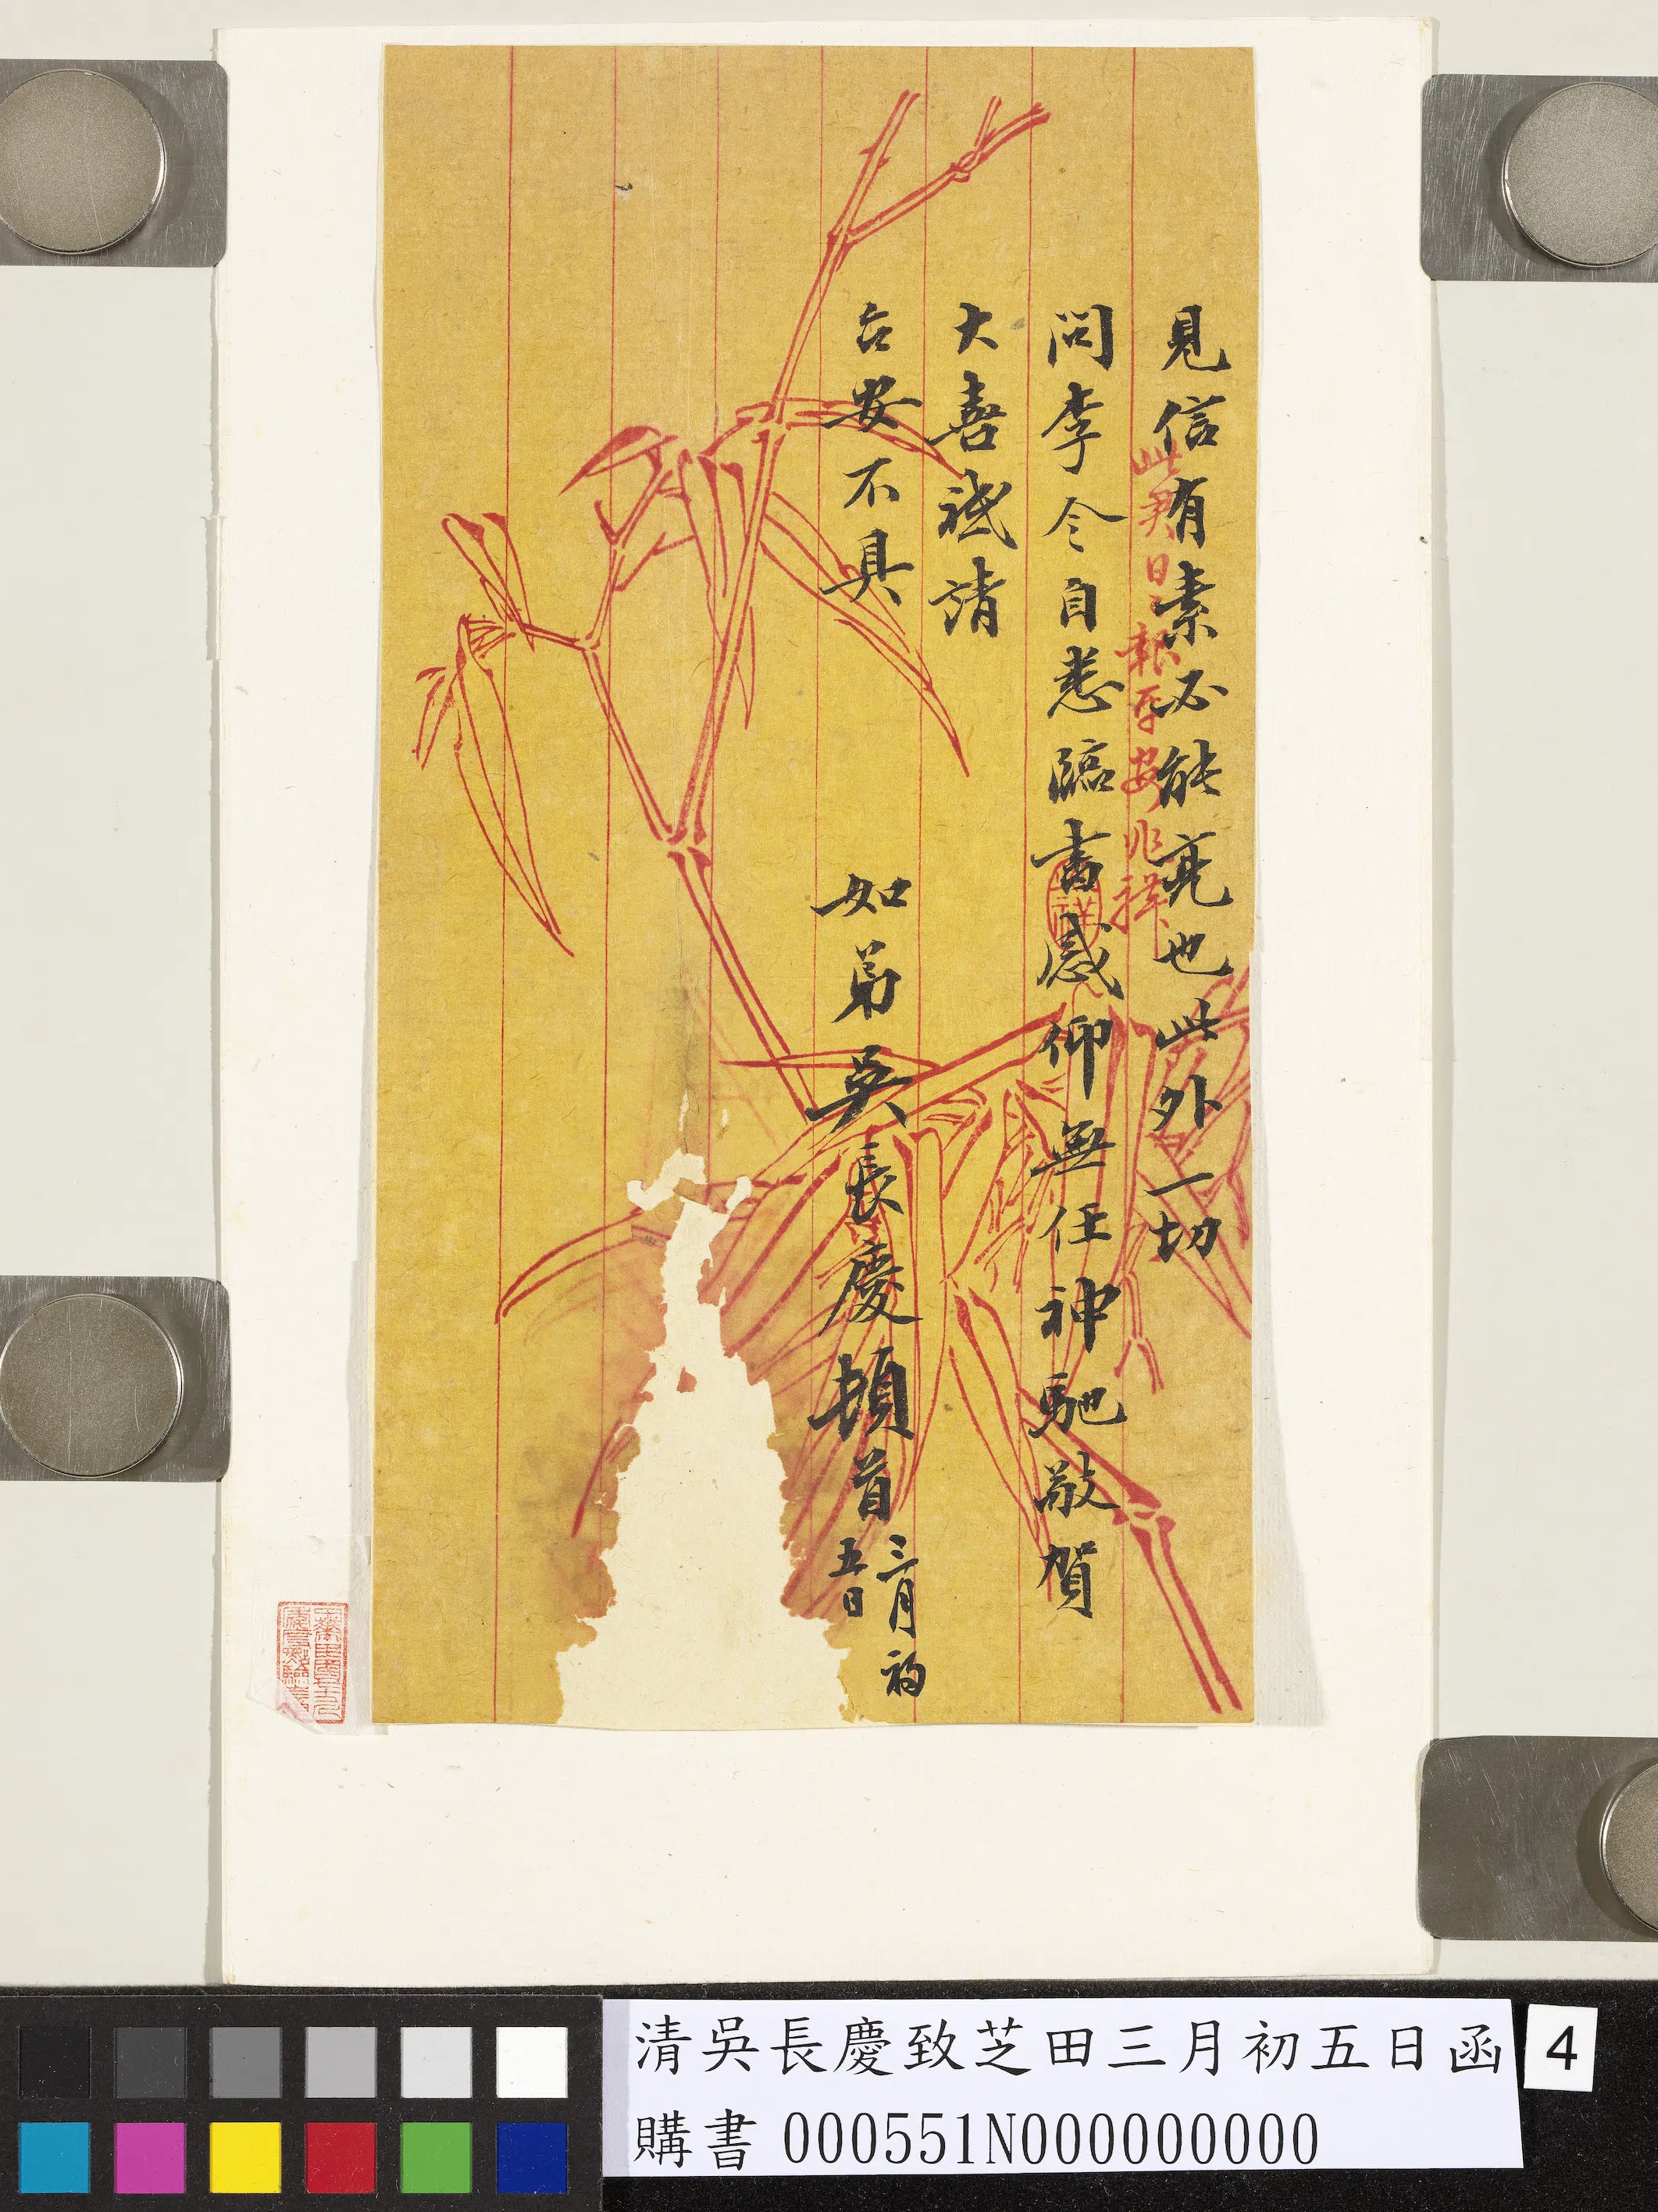 見信有素必能亮也此外一切
問李令自悉臨書感仰無任神馳敬賀
大喜祗請
台安不具
如弟吳長慶頓首
三月初
五日
此君日日報平安
清吳長慶致芝田三月初五日函
購書 000551N000000000
4